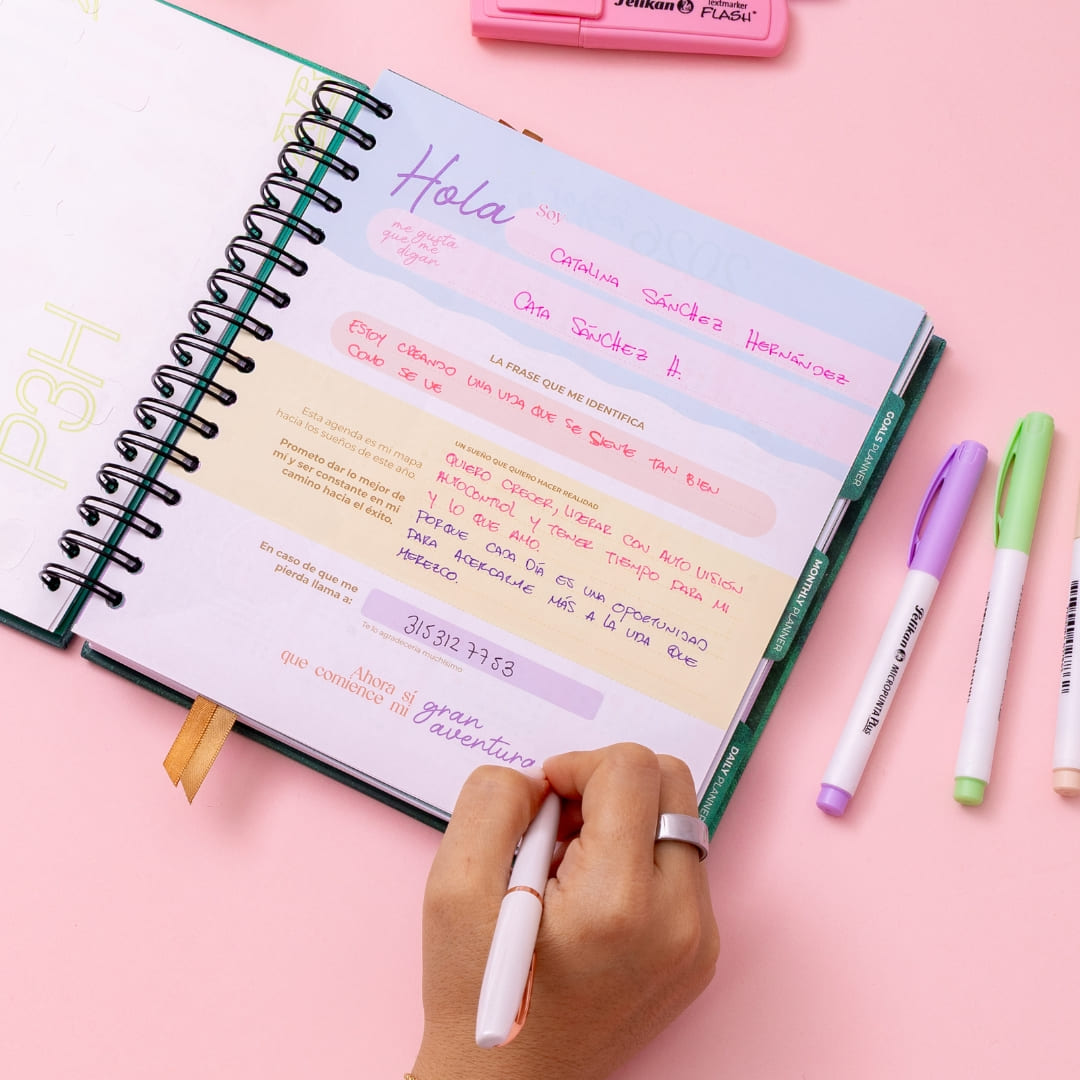 Pelikan Textmarker
FLASH
Hola Soy
CATALINA SÁNCHEZ HERNÁNDEZ
me gusta
que me
digan
CATA SÁNCHEZ H.
LA FRASE QUE ME IDENTIFICA
ESTOY CREANDO UNA VIDA QUE SE SIENTE TAN BIEN
COMO SE VE
Esta agenda es mi mapa
hacia los sueños de este año.
Prometo dar lo mejor de
mí y ser constante en mi
camino hacia el éxito.
UN SUEÑO QUE QUIERO HACER REALIDAD
QUIERO CRECER, LIDERAR CON AUTO VISIÓN
AUTOCONTROL Y TENER TIEMPO PARA MI
Y LO QUE AMO.
PORQUE CADA DÍA ES UNA OPORTUNIDAD
PARA ACERCARME MÁS A LA VIDA QUE
MEREZCO.
En caso de que me
pierda llama a:
315 312 7753
Te lo agradecería muchísimo
Ahora sí
que comience mi
gran
aventura
GOALS PLANNER
MONTHLY PLANNER
DAILY PLANNER
Pelikan MICROPUNTA Plus